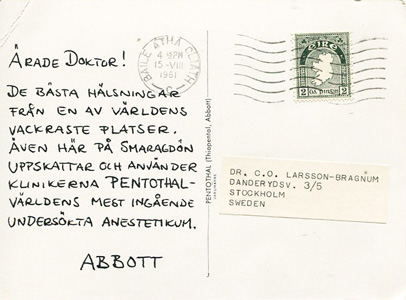 ÄRADE DOKTOR!
DE BÄSTA HÄLSNINGAR
FRÅN EN AV VÄRLDENS
VACKRASTE PLATSER.
ÄVEN HÄR PÅ SMARAGDÖN
UPPSKATTAR OCH ANVÄNDER
KLINIKERNA PENTOTHAL-
VÄRLDENS MEST INGÅENDE
UNDERSÖKTA ANESTETIKUM.
ABBOTT
PENTOTHAL (Thiopental, Abbott)
BAILE ÁTHA CLIATH
15·VIII
1961
ÉIRE
2
DR. C.O. LARSSON-BRAGNUM
DANDERYDSV. 3/5
STOCKHOLM
SWEDEN